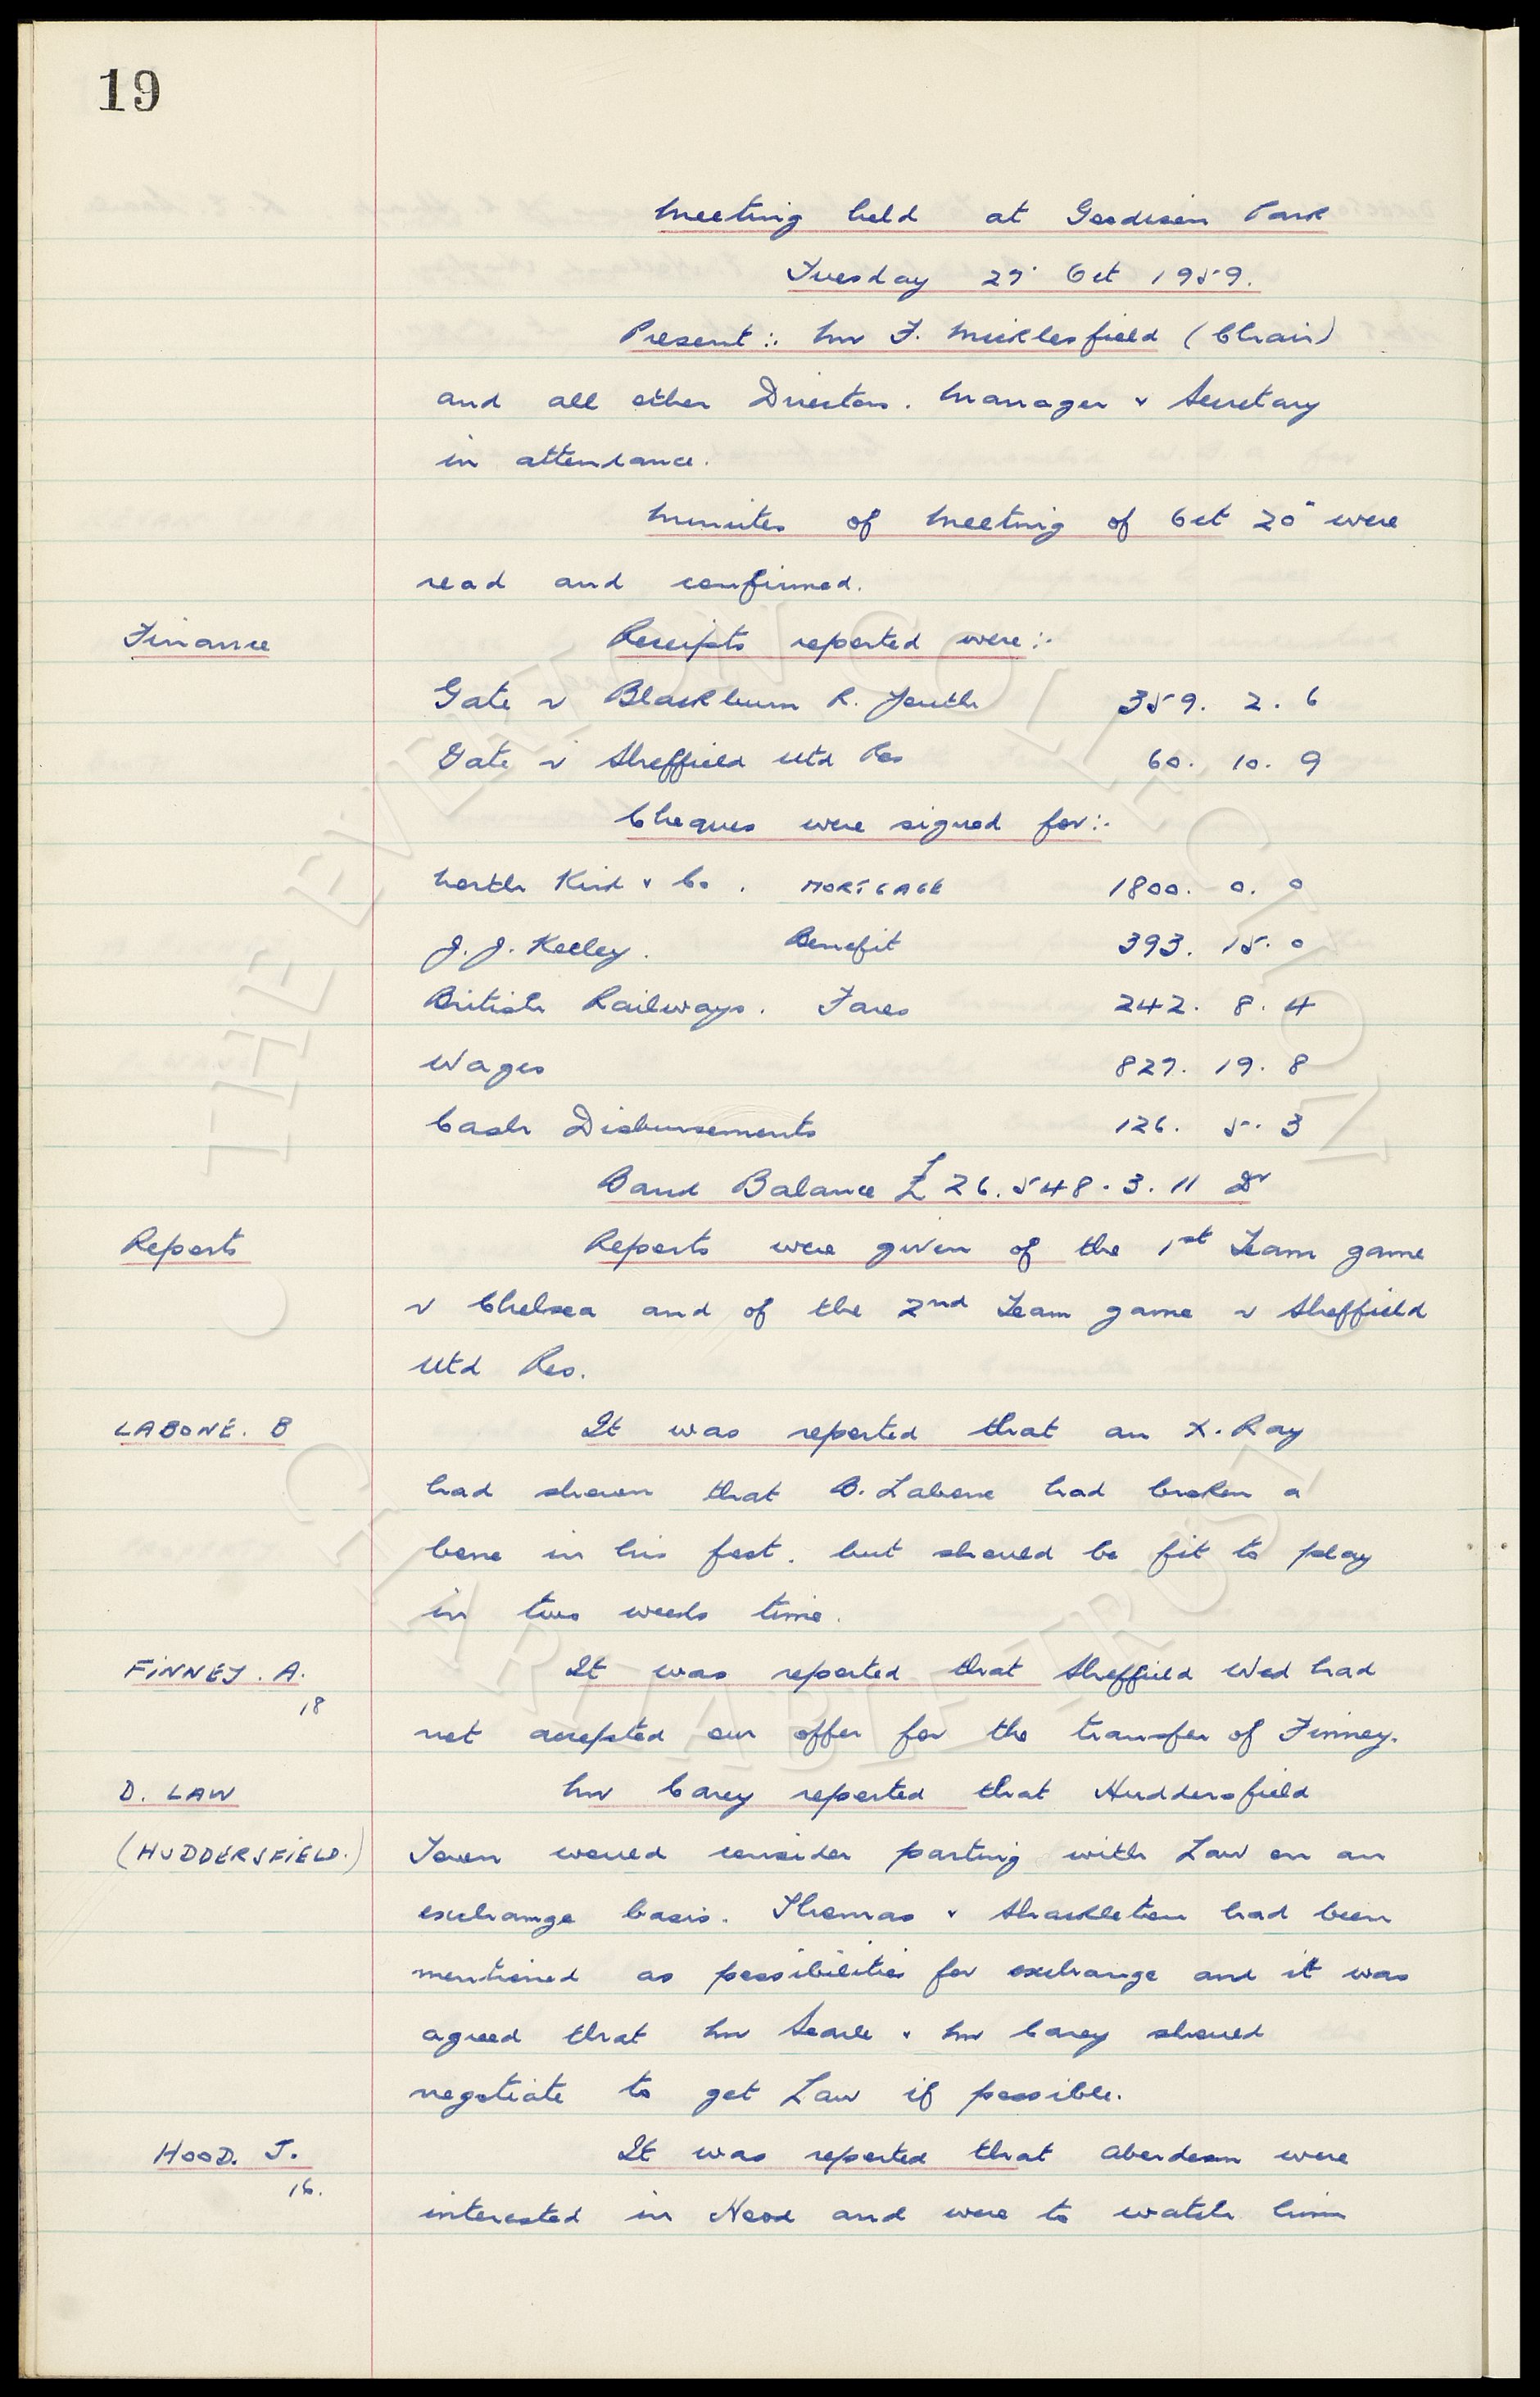 19
Meeting held at Goodison Park
Tuesday 27" Oct 1959.
Present:. Mr F. Micklesfield (Chair)
and all other Directors. Manager & Secretary
in attendance.
Minutes of Meeting of Oct 20" were
read and confirmed.
Finance Receipts reported were:.
Gate v Blackburn R. Youth 359. 2. 6
Gate v Sheffield Utd Res 60. 10. 9
Cheques were signed for:.
North Kirk & Co. MORTGAGE 1800. 0. 0
J. J. Keeley. Benefit 393. 15. 0
British Railways. Fares 242. 8. 4
Wages 827. 19. 8
Cash Disbursements 126. 5. 3
Band Balance £26.548.3.11 Dr
Reports Reports were given of the 1st Team game
v Chelsea and of the 2nd Team game v Sheffield
Utd Res.
LABONE. B It was reported that an X.Ray
had shown that B. Labone had broken a
bone in his foot. but should be fit to play
in two weeks time.
FINNEY. A. It was reported that Sheffield Wed had
18
not accepted our offer for the transfer of Finney.
D. LAW Mr Carey reported that Huddersfield
(HUDDERSFIELD.) Town would consider parting with Law on an
exchange basis. Thomas & Shackleton had been
mentioned as possibilities for exchange and it was
agreed that Mr Searle & Mr Carey should
negotiate to get Law if possible.
HOOD. J. It was reported that Aberdeen were
16.
interested in Hood and were to watch him
THE EVERTON COLLECTION
CHARITABLE TRUST